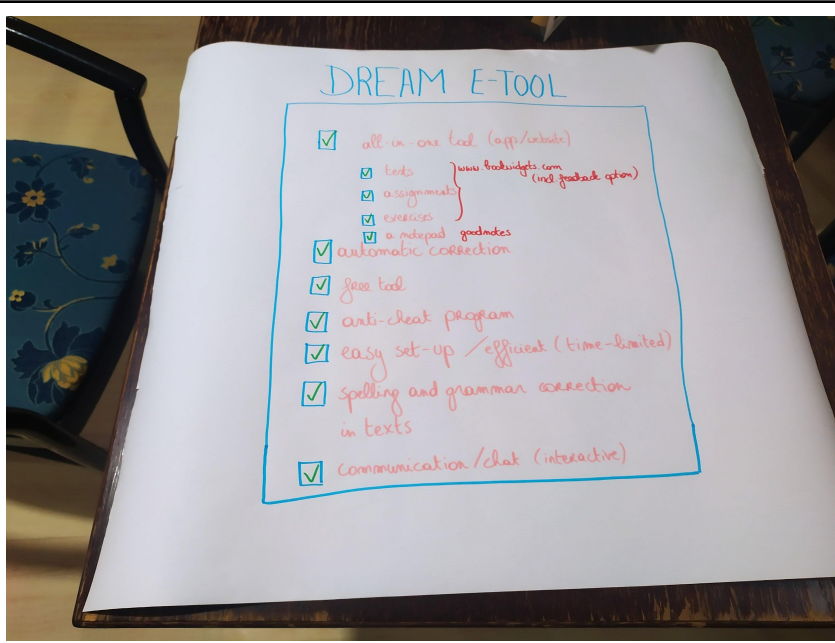 DREAM E-TOOL
all-in-one tool (app/website)
tests www.bookwidgets.com
(incl. feedback option)
assignments
exercises
a notepad goodnotes
automatic correction
free tool
anti-cheat program
easy set-up / efficient (time-limited)
spelling and grammar correction
in texts
communication/chat (interactive)